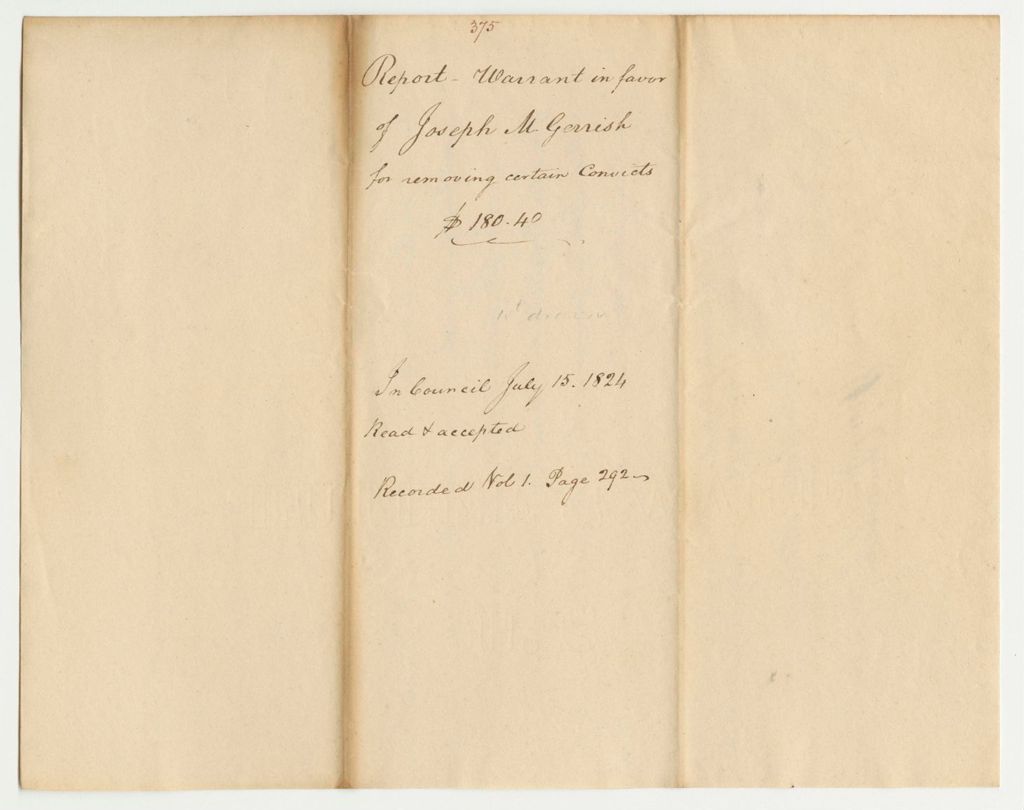 375
Report - Warrant in favor
of Joseph M Gerrish
for removing certain Convicts
$ 180.40
drawn
In Council July 15. 1824
Read & accepted
Recorded Vol 1. Page 292